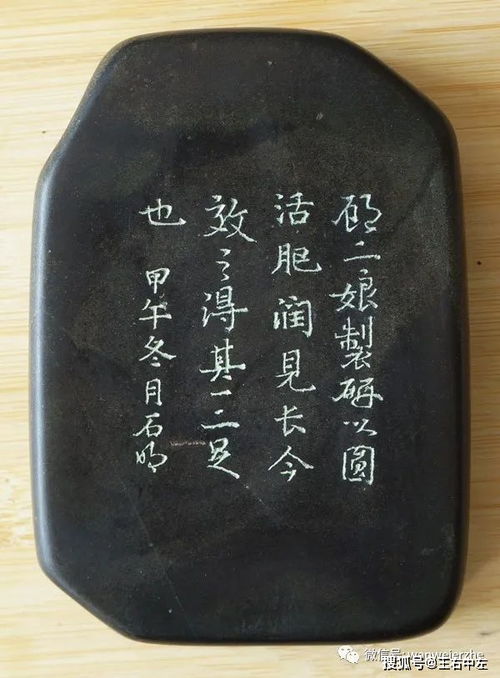 顾二娘製砚以圆
活肥润见长今
效之得其一二足
也 甲午冬月石明
微信号: wanweierzhe
搜狐号@王右中左